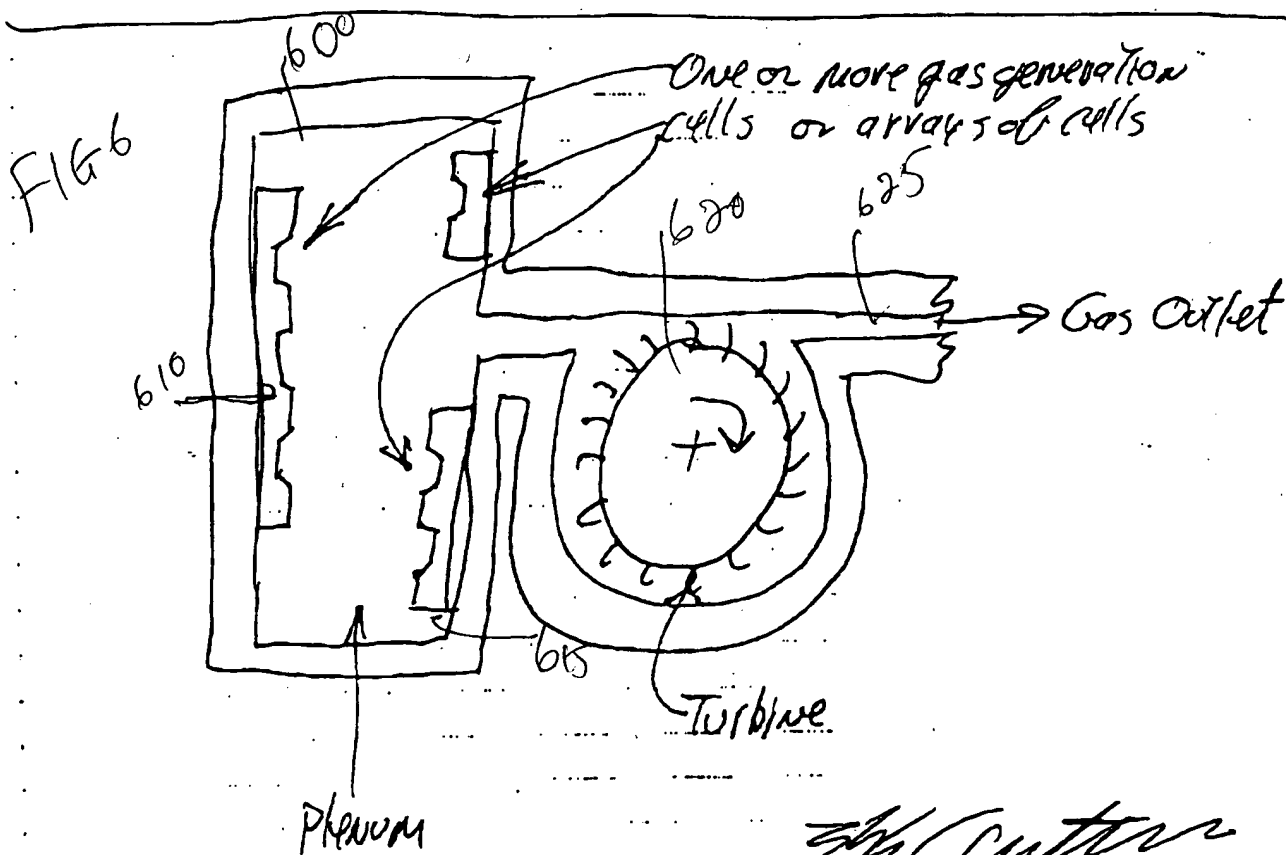 600
One or more gas generation
cells or arrays of cells
FIG 6
625
620
Gas Outlet
610
615
Turbine
Plenum